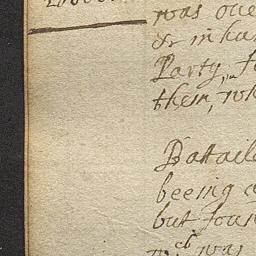 was oue
& in ha
Party, f
them, wh
Battaile
beeing
but foun
wch was